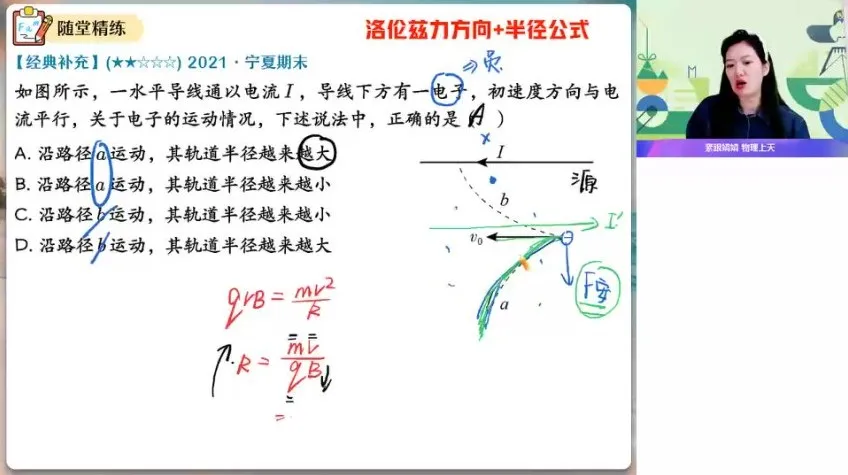 随堂精练
洛伦兹力方向+半径公式
【经典补充】(★★☆☆☆) 2021·宁夏期末
⇒负
如图所示，一水平导线通以电流I，导线下方有一电子，初速度方向与电
流平行，关于电子的运动情况，下述说法中，正确的是（A）
A. 沿路径a运动，其轨道半径越来越大
B. 沿路径a运动，其轨道半径越来越小
C. 沿路径b运动，其轨道半径越来越小
D. 沿路径b运动，其轨道半径越来越大
×
I
源
b
I'
v₀
F安
a
qvB = mv²/R
R = mv/qB
=
紧跟婧婧 物理上天